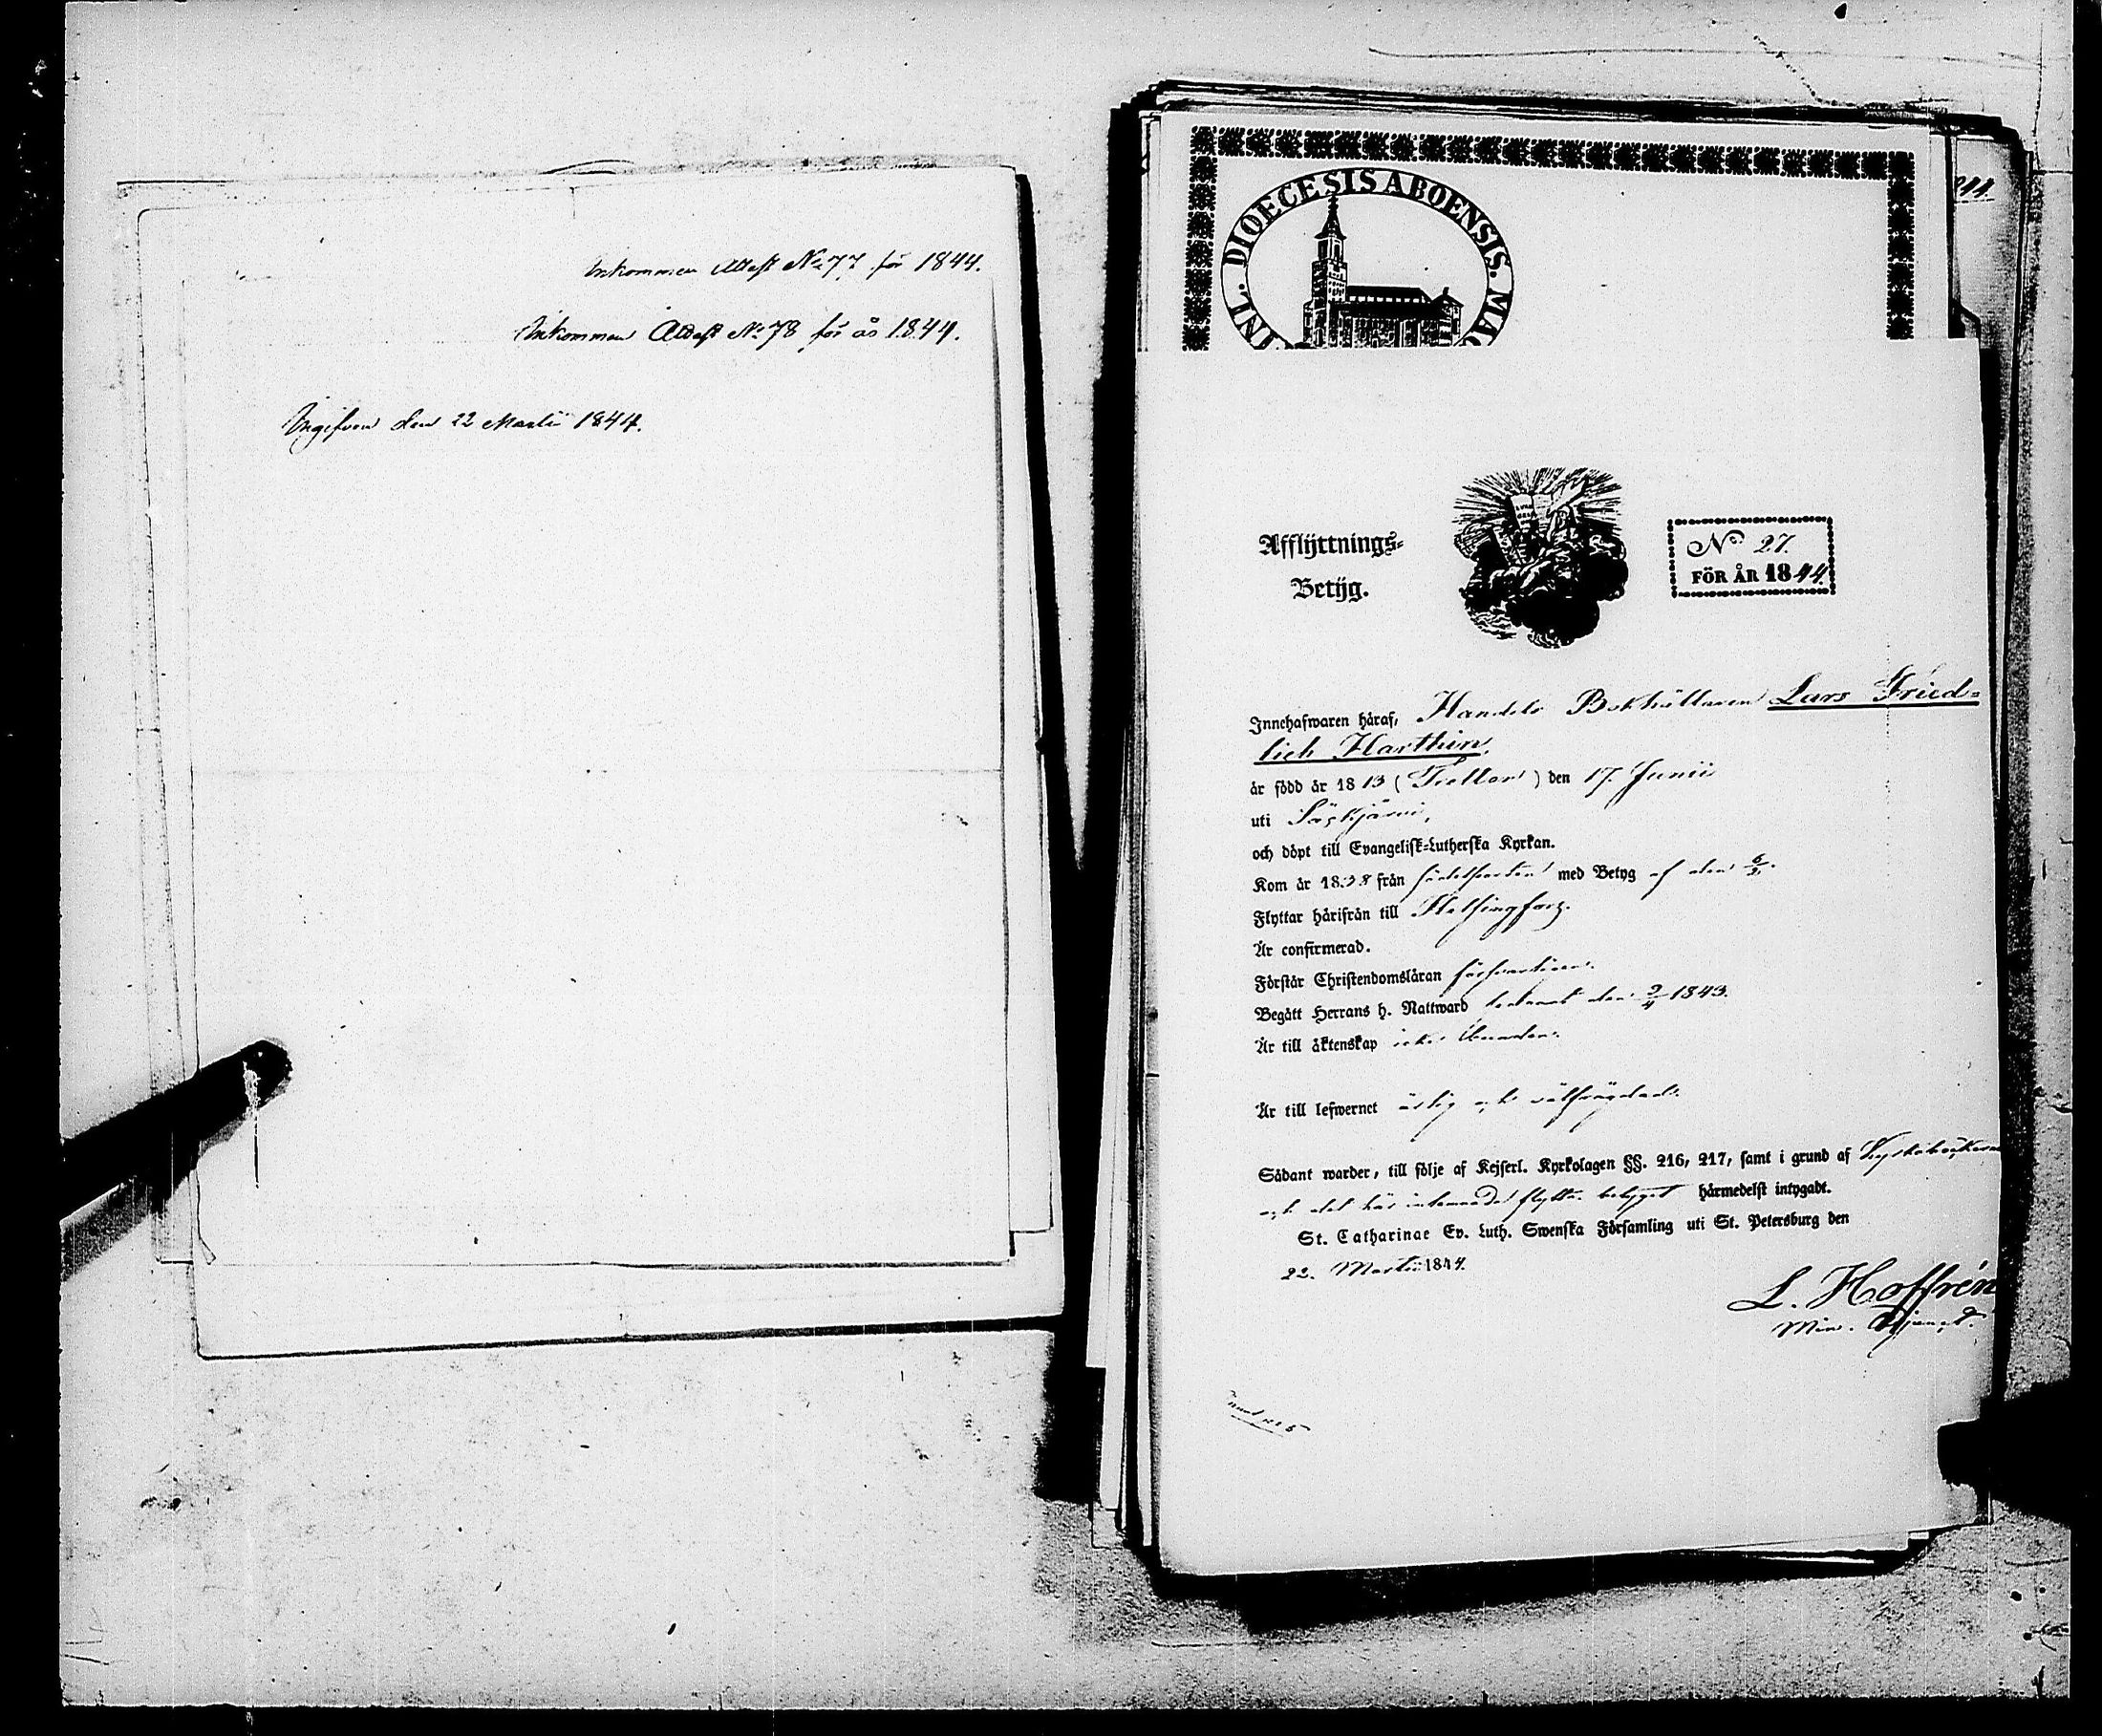 Inkommen Attest No 77 för 1844.
Inkommen Attest No 78 för år 1844.
Ingifven den 22 Martii 1844.
844.
INL. DIOECESIS ABOENSIS. MAG
Afflyttnings-
Betyg.
No. 27.
FÖR ÅR 1844.
Innehafwaren häraf, Handels Bokhållaren Lars Fried-
rich Harthin,
är född år 1813 (Tretton) den 17. Junii
uti Säkjärvi,
och döpt till Evangelisk-Lutherska Kyrkan.
Kom år 1838 från födelseorten med Betyg af den 6/3.
Flyttar härifrån till Helsingfors.
Är confirmerad.
Förstår Christendomsläran försvarligen.
Begått Herrans h. Nattward senast den 2/4 1843.
Är till äktenskap icke bunden.
Är till lefwernet ärlig och välfrägdad.
Sådant warder, till följe af Kejserl. Kyrkolagen §§. 216, 217, samt i grund af Kyrkoböckerne
och det här inlemnade flyttnings betyget härmedelst intygadt.
St. Catharinae Ev. Luth. Swenska Församling uti St. Petersburg den
22. Martii 1844.
L. Hoffrén
Min. Adjunct.